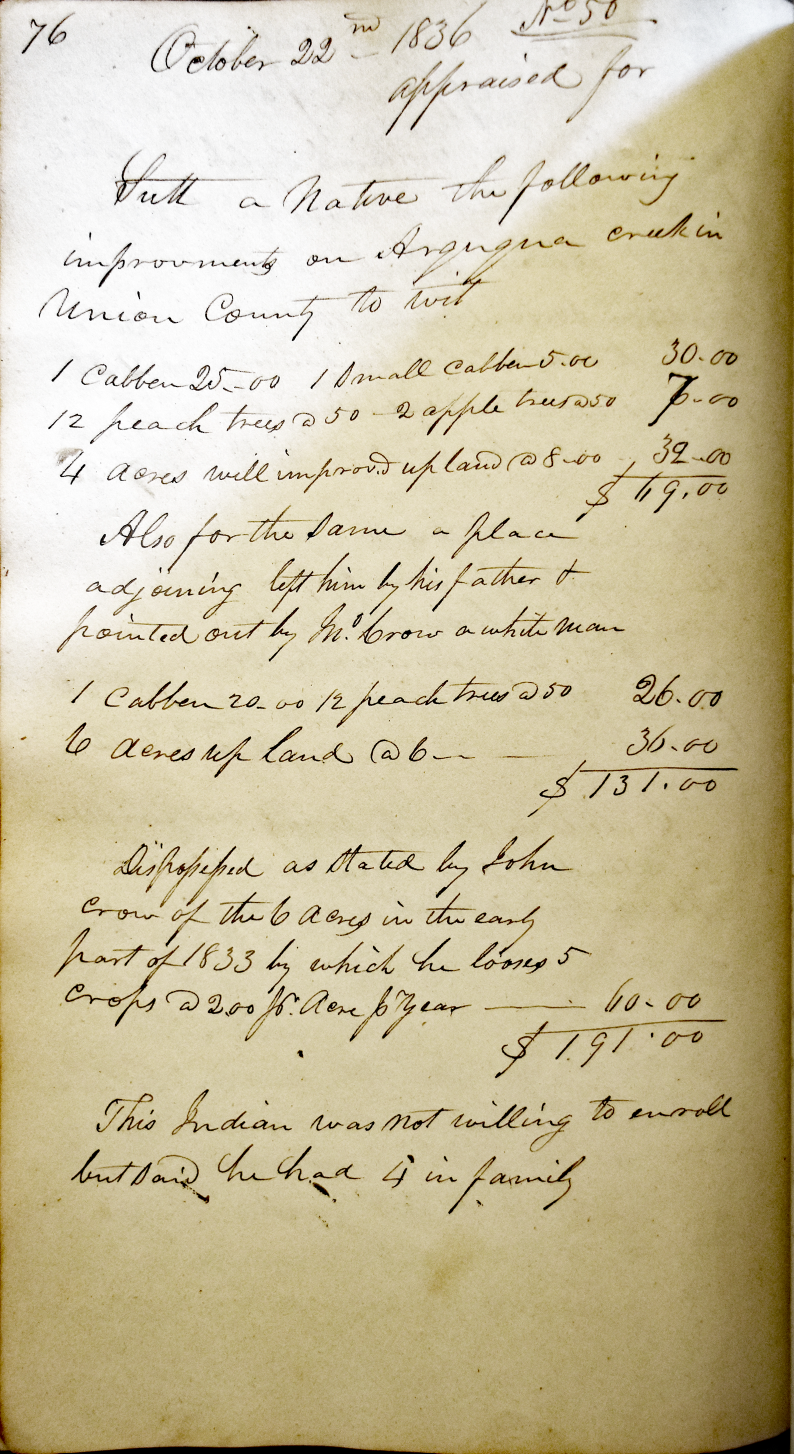 76
October 22nd 1836 No 50
appraised for
Sutt a Native the following
improvments on Arququa creek in
Union County to wit
1 Cabben 25-00 1 Small Cabben 5-00 30-00
12 peach trees @ 50 - 2 apple trees @ 50 7-00
4 Acres will improvd up land @ 8-00 32-00
$ 69.00
Also for the Same a place
adjoining left him by his father &
pointed out by Mr. Crow a white man
1 Cabben 20-00 12 peach trees @ 50 26.00
6 Acres up land @ 6-- 36-00
$ 131.00
Dispossessed as Stated by John
Crow of the 6 Acres in the early
part of 1833 by which he looses 5
crops @ 200 pr. Acre pr year 60-00
$ 191.00
This Indian was not willing to enroll
but Said he had 4 in family